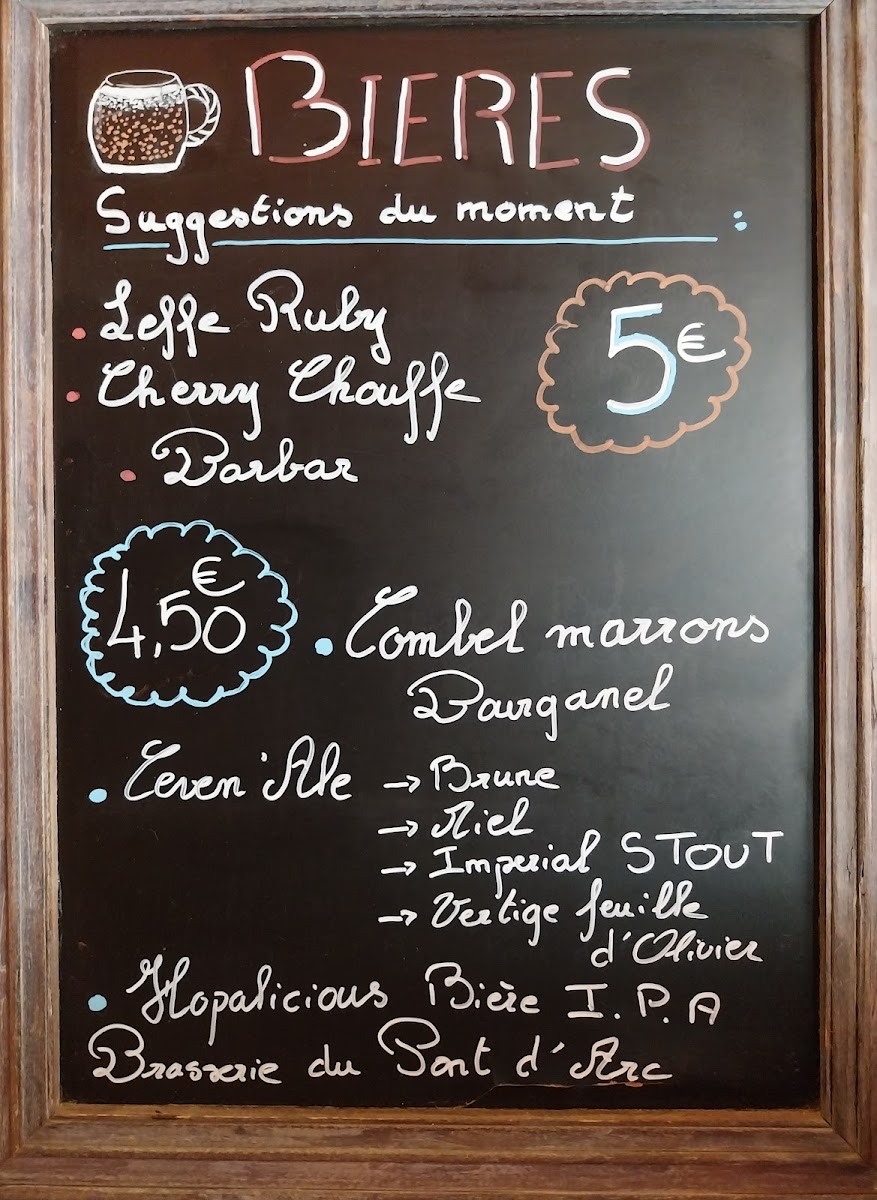 BIERES
Suggestions du moment :
• Leffe Ruby
5€
• Cherry Chouffe
• Barbar
4,50€
• Combel marrons
Bourganel
• Ceven'Ale → Brune
→ Miel
→ Imperial STOUT
→ Vertige feuille
d'Olivier
• Hopalicious Bière I.P.A
Brasserie du Pont d'Arc